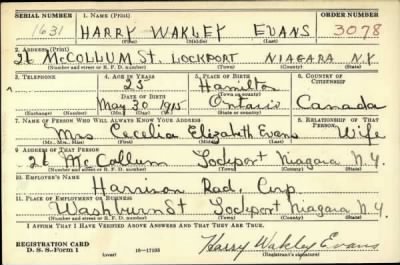 SERIAL NUMBER 1. NAME (Print) ORDER NUMBER
1631 HARRY WAKLEY EVANS 3078
(First) (Middle) (Last)
2. ADDRESS (Print)
26 McCOLLUM St. LOCKPORT NIAGARA N.Y.
(Number and street or R. F. D. number) (Town) (County) (State)
3. TELEPHONE 4. AGE IN YEARS 5. PLACE OF BIRTH 6. COUNTRY OF CITIZENSHIP
25 Hamilton
DATE OF BIRTH (Town or county)
May 30 1915 Ontario Canada
(Exchange) (Number) (Mo.) (Day) (Yr.) (State or country)
7. NAME OF PERSON WHO WILL ALWAYS KNOW YOUR ADDRESS 8. RELATIONSHIP OF THAT PERSON
Mrs Cecelia Elizabeth Evans Wife
(Mr., Mrs., Miss) (First) (Middle) (Last)
9. ADDRESS OF THAT PERSON
26 McCollum Lockport Niagara N.Y.
(Number and street or R. F. D. number) (Town) (County) (State)
10. EMPLOYER'S NAME
Harrison Rad. Corp.
11. PLACE OF EMPLOYMENT OR BUSINESS
Washburn St Lockport Niagara N.Y.
(Number and street or R. F. D. number) (Town) (County) (State)
I AFFIRM THAT I HAVE VERIFIED ABOVE ANSWERS AND THAT THEY ARE TRUE.
REGISTRATION CARD
D. S. S. Form 1 (over) 16—17105
Harry Wakley Evans
(Registrant's signature)